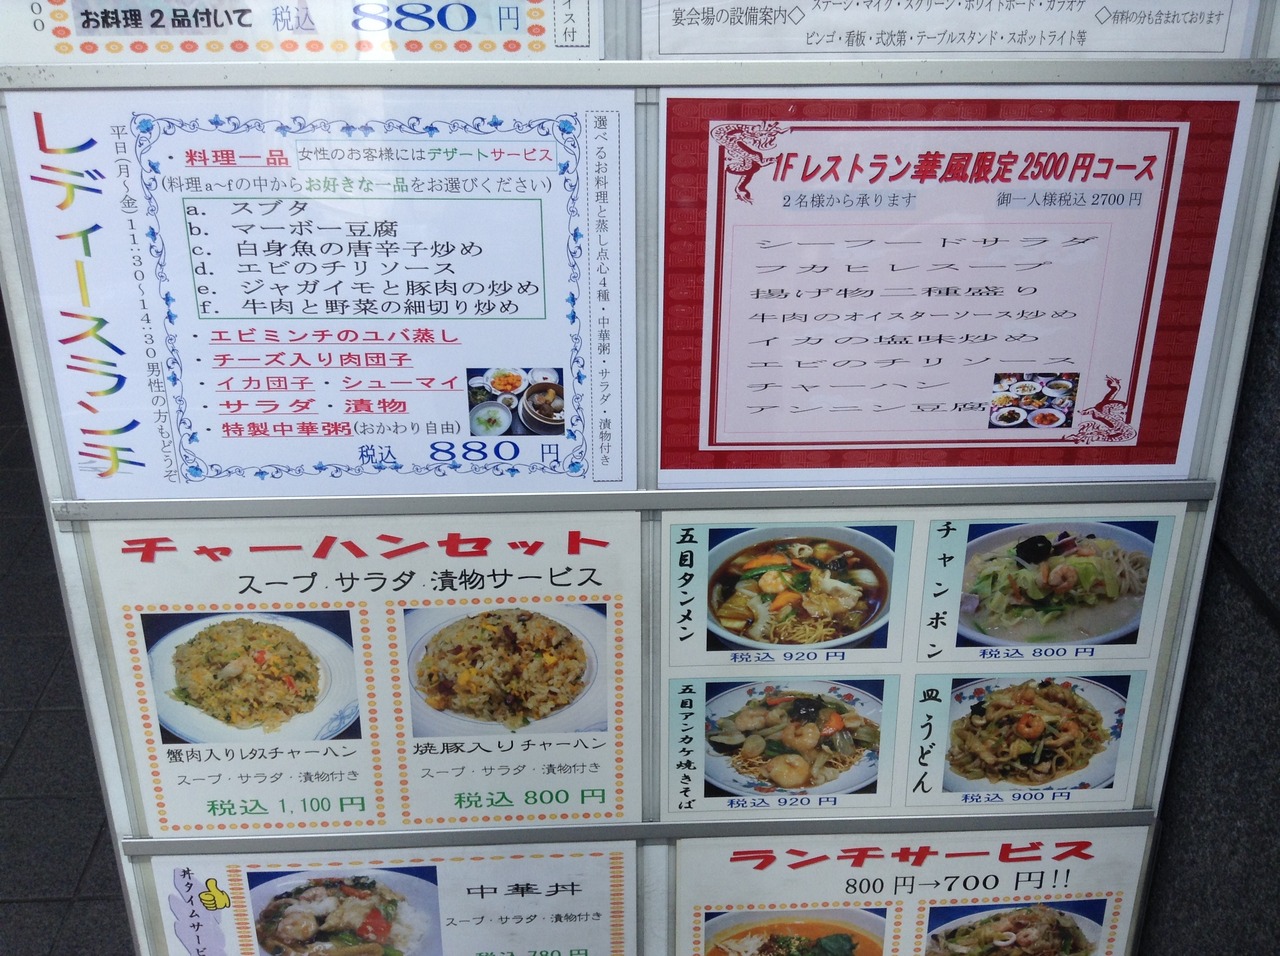 お料理2品付いて 税込 880 円
宴会場の設備案内◇
ステージ・マイク・スクリーン・ホワイトボード・カラオケ
◇有料の分も含まれております
ビンゴ・看板・式次第・テーブルスタンド・スポットライト等
レディースランチ
平日(月～金)11:30～14:30男性の方もどうぞ
・料理一品 女性のお客様にはデザートサービス
(料理a～fの中からお好きな一品をお選びください)
a. スブタ
b. マーボー豆腐
c. 白身魚の唐辛子炒め
d. エビのチリソース
e. ジャガイモと豚肉の炒め
f. 牛肉と野菜の細切り炒め
・エビミンチのユバ蒸し
・チーズ入り肉団子
・イカ団子・シューマイ
・サラダ・漬物
・特製中華粥(おかわり自由)
税込 880 円
選べるお料理と蒸し点心4種・中華粥・サラダ・漬物付き
1Fレストラン華風限定2500円コース
2名様から承ります 御一人様税込2700円
シーフードサラダ
フカヒレスープ
揚げ物二種盛り
牛肉のオイスターソース炒め
イカの塩味炒め
エビのチリソース
チャーハン
アンニン豆腐
チャーハンセット
スープ.サラダ.漬物サービス
蟹肉入りレタスチャーハン
スープ・サラダ・漬物付き
税込 1,100 円
焼豚入りチャーハン
スープ・サラダ・漬物付き
税込 800 円
五目タンメン
税込 920 円
チャンポン
税込 800 円
五目アンカケ焼きそば
税込 920 円
皿うどん
税込 900 円
丼タイムサービ
中華丼
スープ・サラダ・漬物付き
税込 780 円
ランチサービス
800円→700円!!